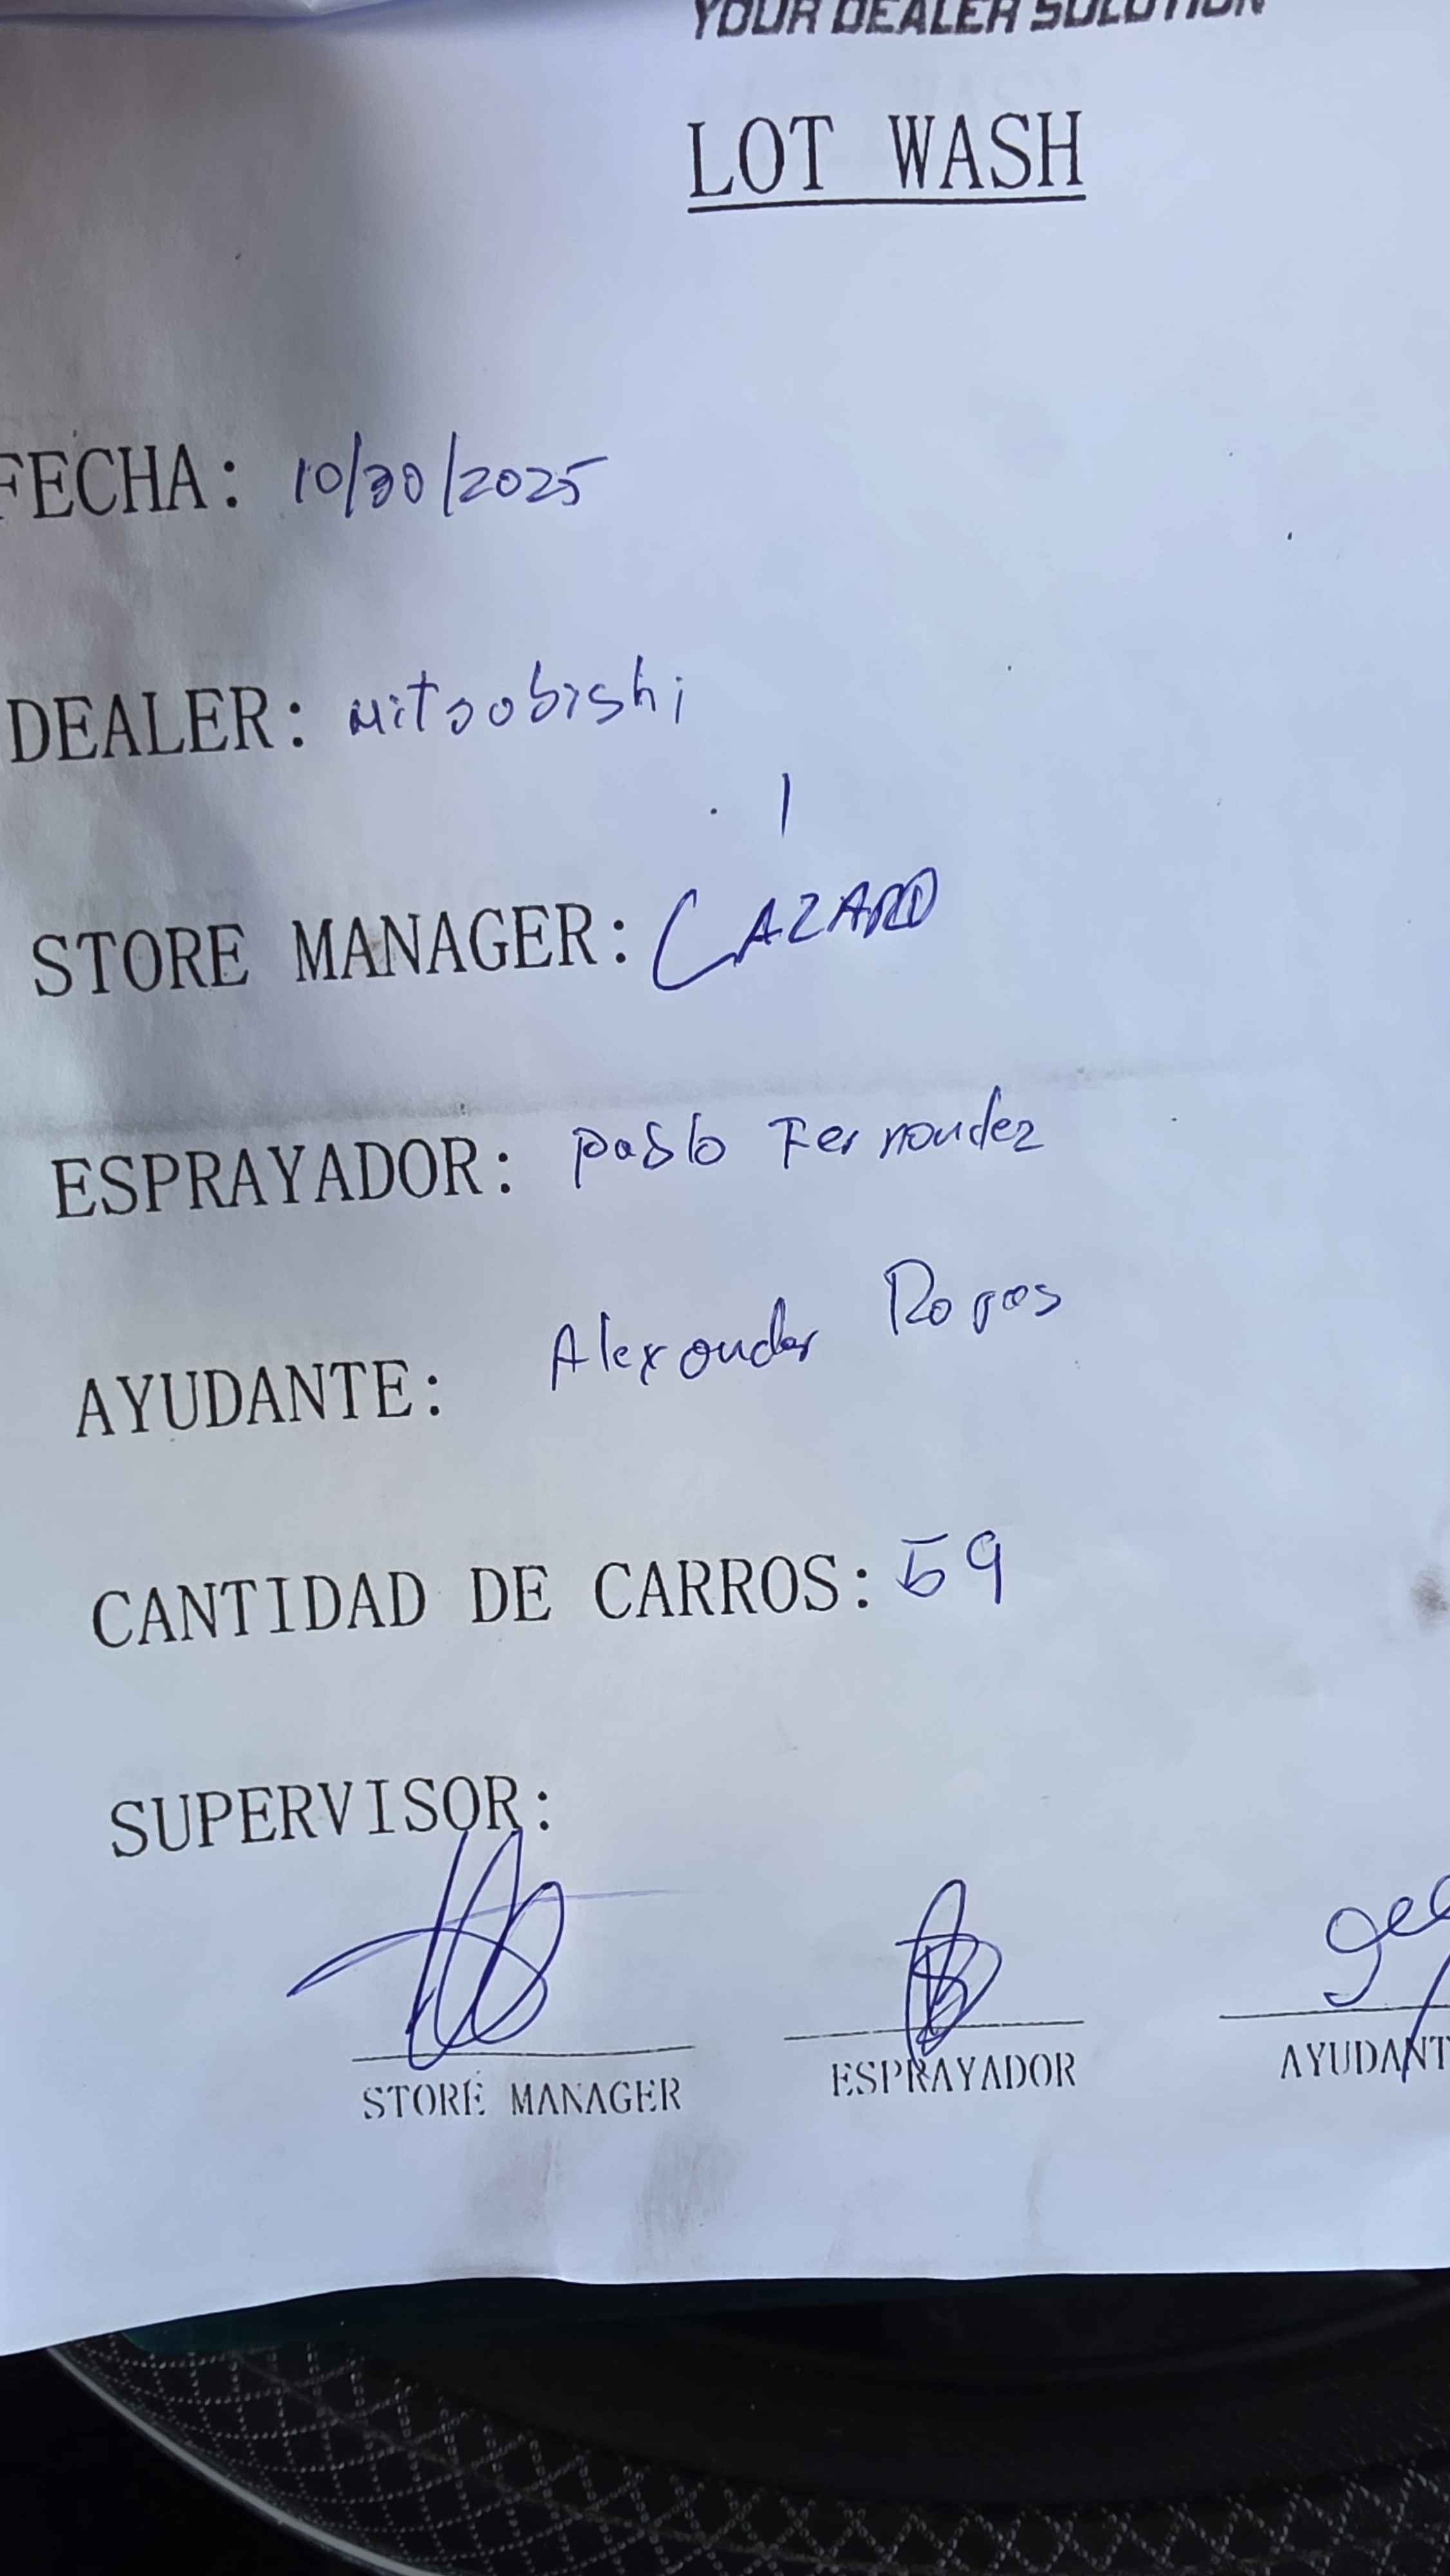 YOUR DEALER SOLUTION
LOT WASH
FECHA: 10/30/2025
DEALER: mitsobishi
STORE MANAGER: LAZARO
ESPRAYADOR: Pablo Fernandez
AYUDANTE: Alexander Rojas
CANTIDAD DE CARROS: 59
SUPERVISOR:
STORE MANAGER ESPRAYADOR AYUDANT